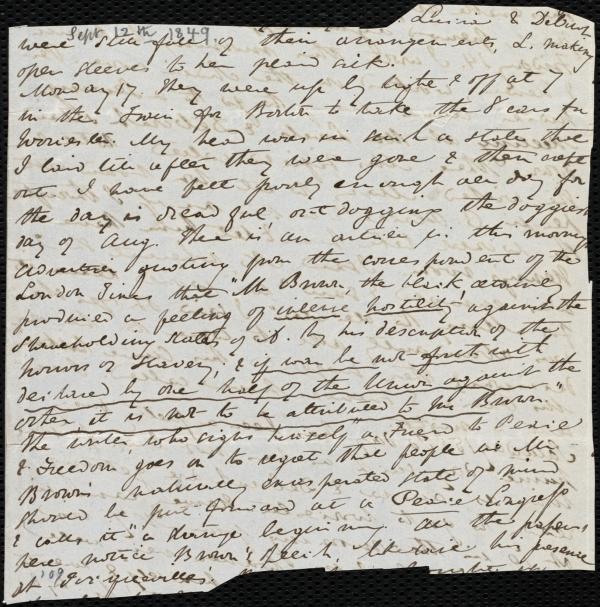 Sept. 12th 1849
Luisa & Debrah
were still full of their arrangements, L. making
open sleeves to her plaid silk.
Monday 17. They were up by light & off at 7
in the Train for Boston to take the 8 cars for
Worcester. My head was in such a state that
I laid till after they were gone & then crept
out. I have felt poorly enough all day for
the day is dreadful, out dogging the doggiest
day of Aug. There is an article in this morning
Advertiser quoting from the correspondent of the
London Times that "Mr Brown, the black, certainly
produced a feeling of intense hostility against the
Slaveholding States of A. by his description of the
horrors of Slavery, & if war be not forthwith
declared by one half of the Union against the
other it is not to be attributed to Mr Brown."
The writer, who signs himself "a Friend to Peace
& Freedom" goes on to regret that people in Mr
Brown's naturally exasperated state of mind
should be put forward at a Peace Congress
& calls it "a strange beginning." All the papers
here notice Brown's speech, likewise his presence
at
109